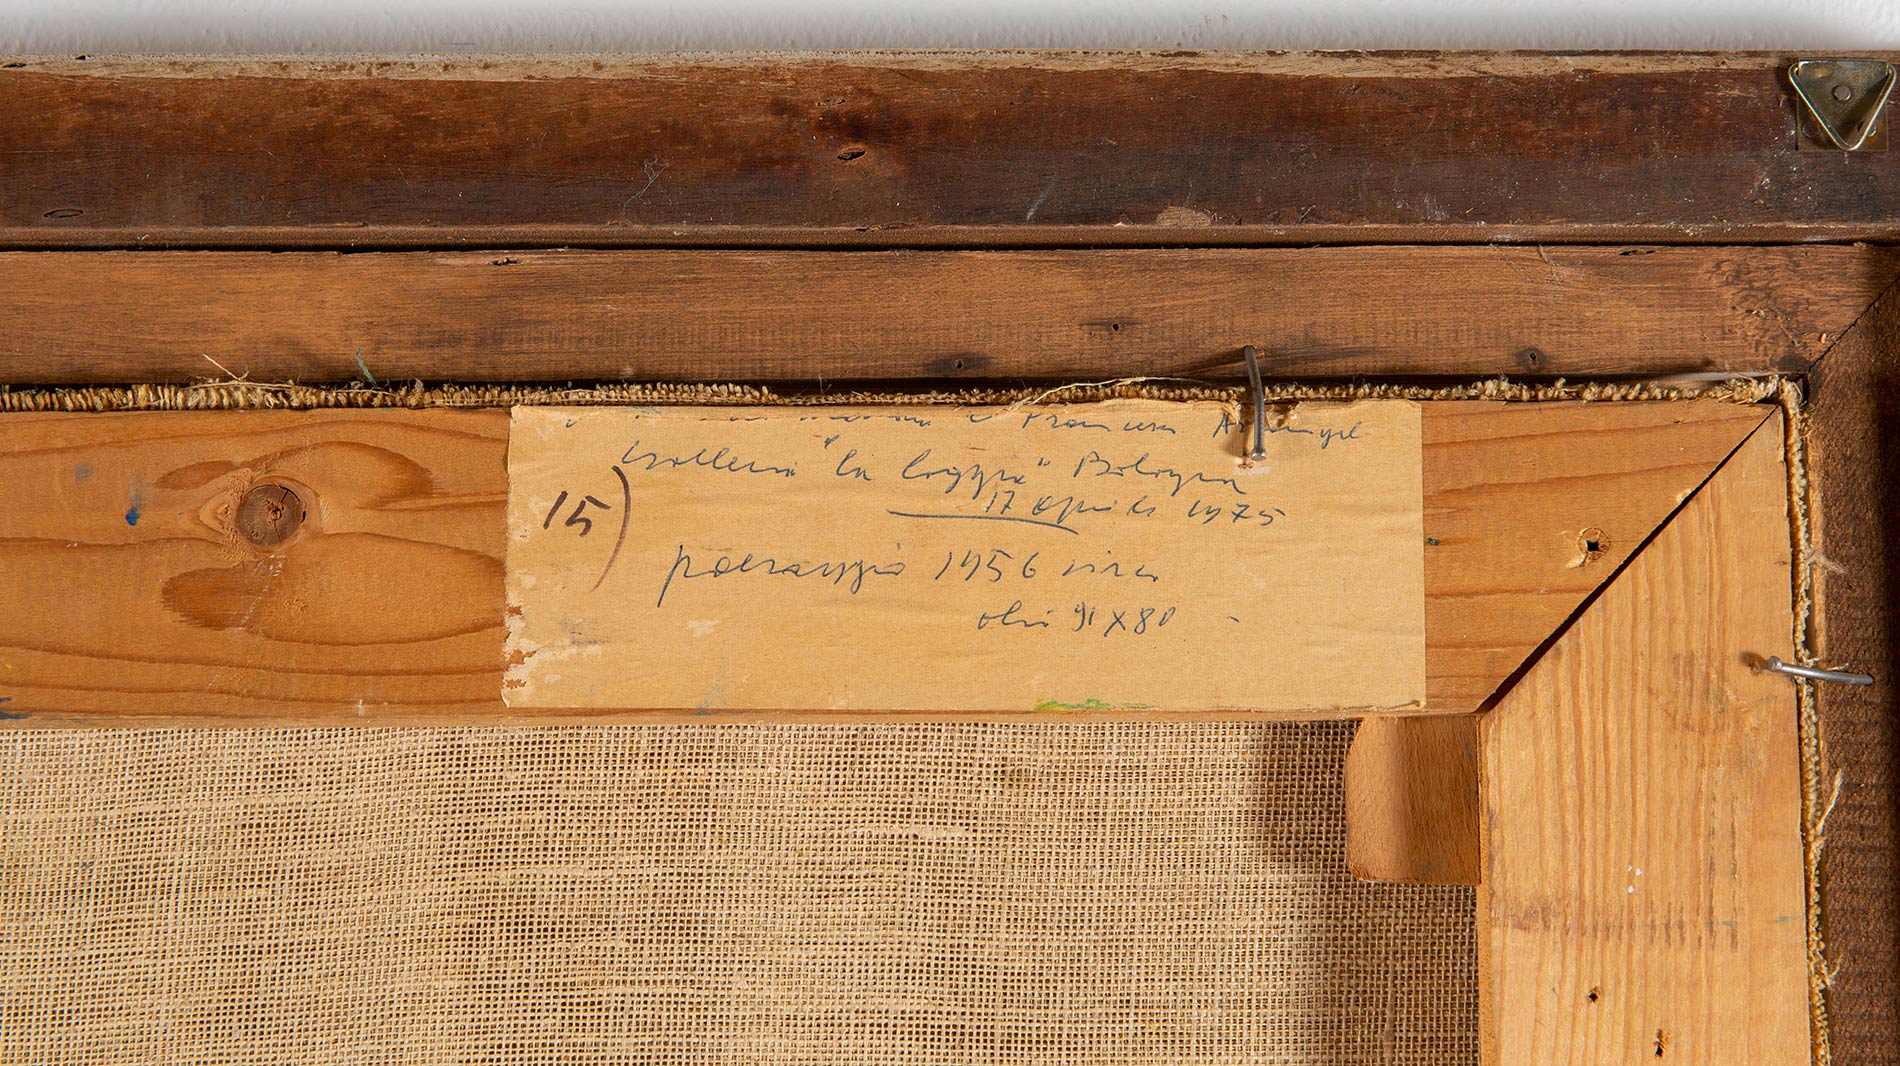 e Francesco Arcangeli
Galleria "La Loggia" Bologna
17 aprile 1975
15)
paesaggio 1956 circa
olio 91 x 80